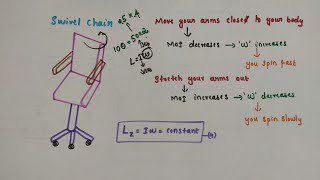 Swivel Chain
Move your arms close to your body
MoI decreases → 'ω' increases
you spin fast
L = Iω
Stretch your arms out
MoI increases → 'ω' decreases
you spin slowly
L₂ = Iω = constant